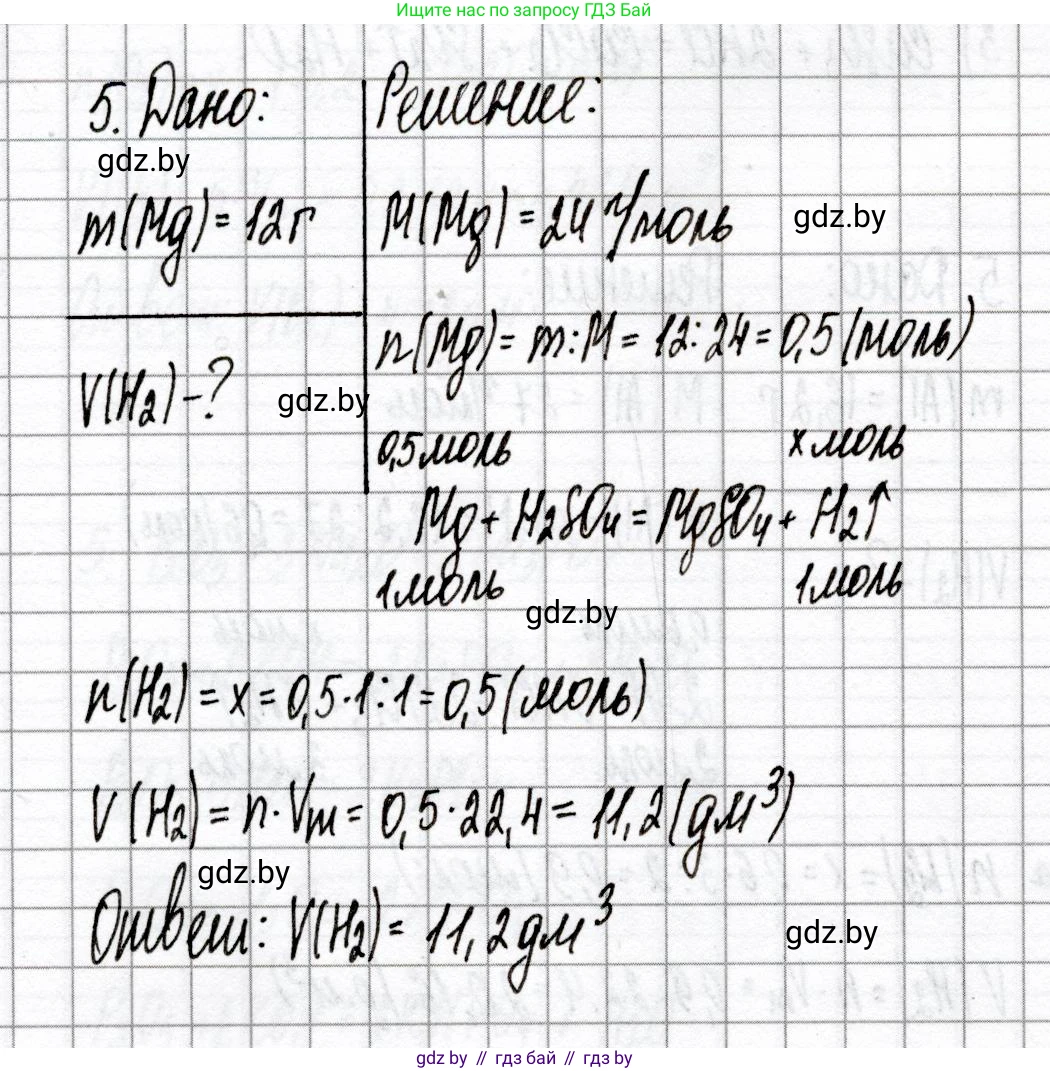 Ищите нас по запросу ГДЗ Бай
5. Дано:
Решение:
gdz.by
m(Mg) = 12 г
M(Mg) = 24 г/моль
gdz.by
n(Mg) = m : M = 12 : 24 = 0,5 (моль)
V(H₂) - ?
gdz.by
0,5 моль
x моль
Mg + H₂SO₄ = MgSO₄ + H₂↑
1 моль
1 моль
gdz.by
n(H₂) = x = 0,5 · 1 : 1 = 0,5 (моль)
V(H₂) = n · Vm = 0,5 · 22,4 = 11,2 (дм³)
gdz.by
Ответ: V(H₂) = 11,2 дм³
gdz.by
gdz by // гдз бай // гдз by